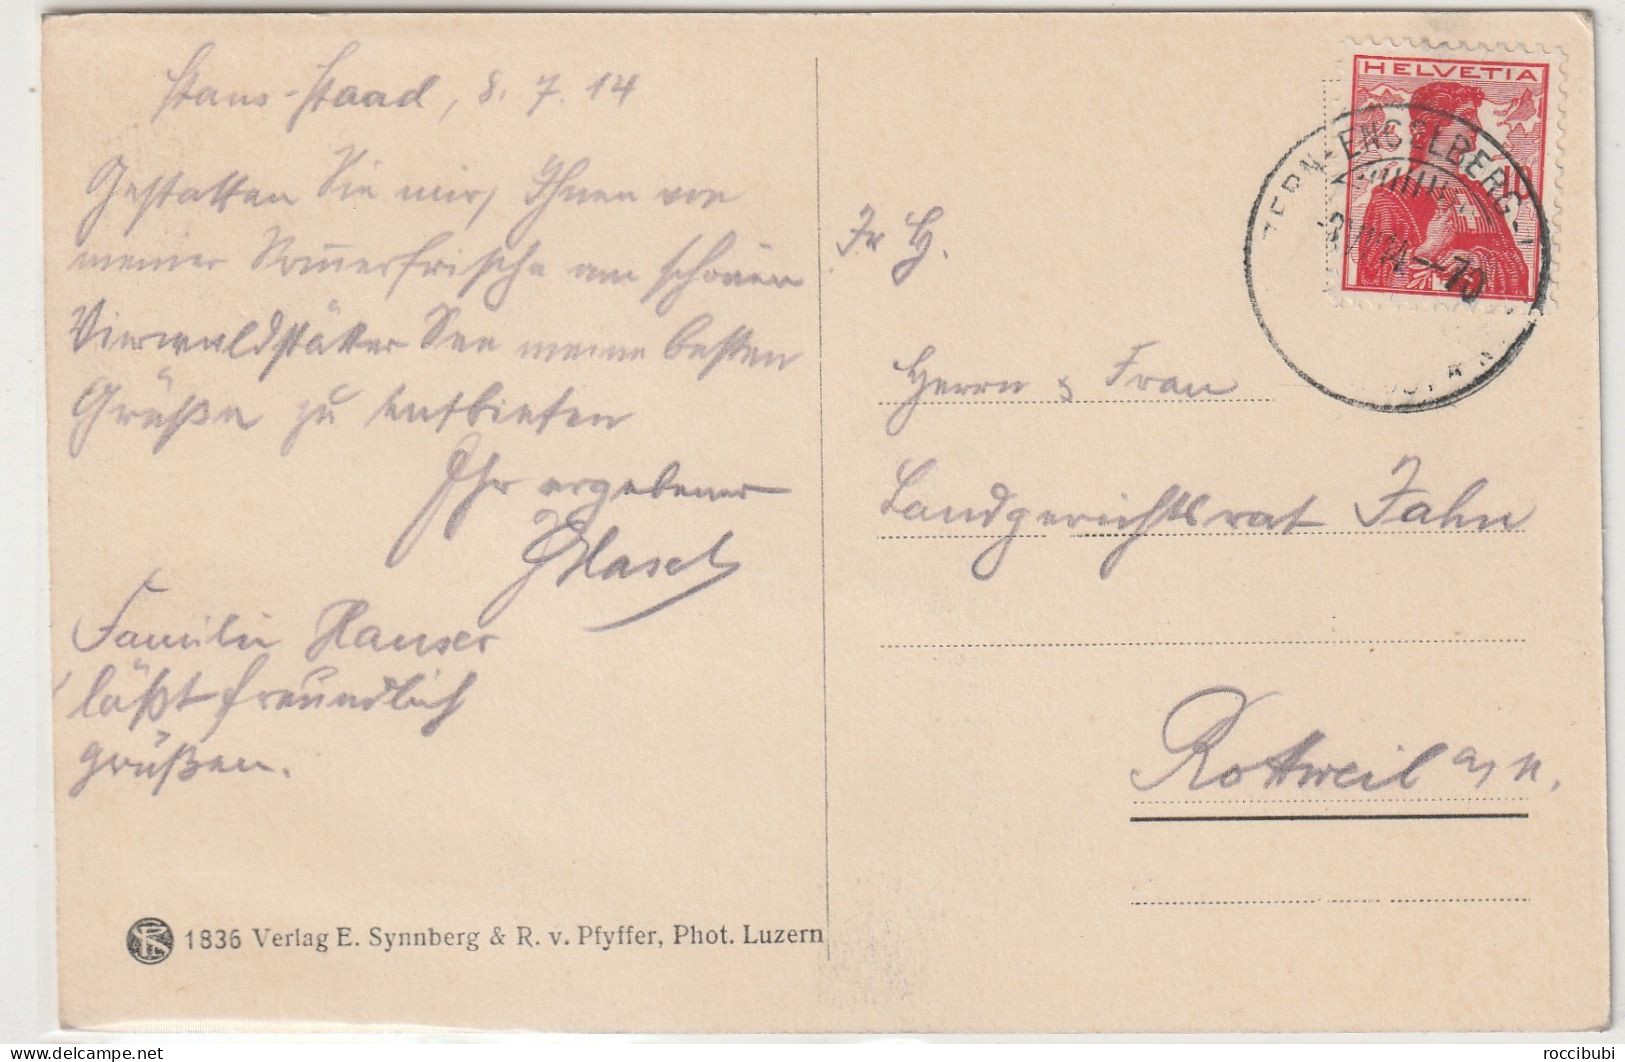 Stans-Staad, 8. 7. 14
Gestatten Sie mir, Ihnen von
meiner Som̅erfrische am schönen
Vierwaldstätter See meine besten
Grüße zu entbieten
Ihr ergebener
Familie Hauser
läßt freundlich
grüßen.
1836 Verlag E. Synnberg & R. v. Pfyffer, Phot. Luzern
HELVETIA
10
ZERN-ENGELBERG
14
Fr H.
Herrn & Frau
Landgerichtsrat Jahn
Rottweil a/N.
roccibubi
delcampe.net